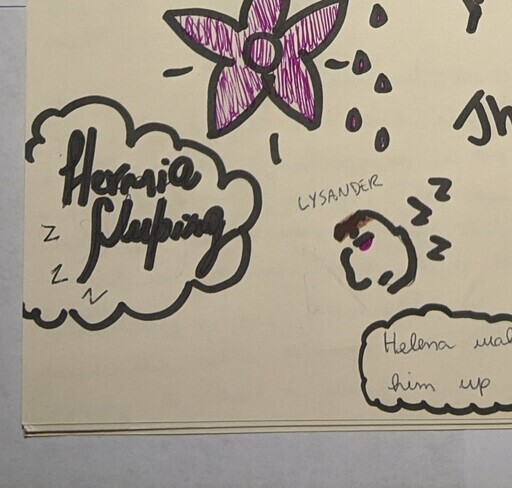 Hermia
Sleeping
z
z
z
LYSANDER
z
z
z
Helena
him up